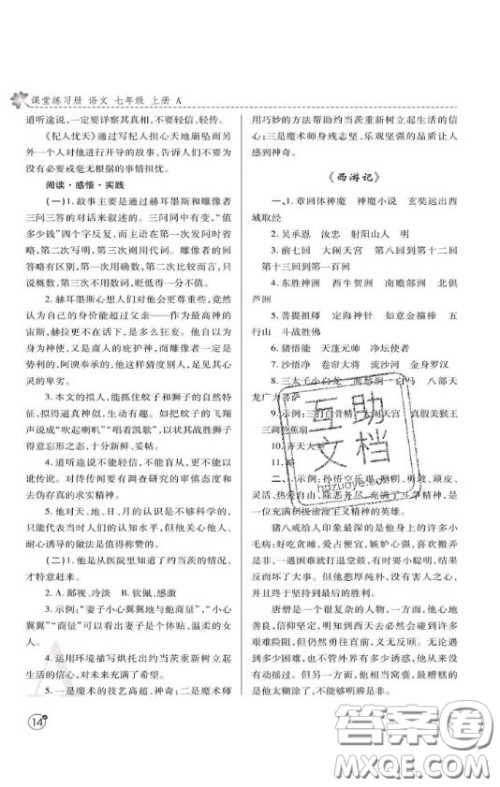 课堂练习册 语文 七年级 上册 A
道听途说,一定要详察其真相,不轻信,轻传。
《杞人忧天》通过写杞人担心天地崩坠而另外一个人对他进行开导的故事,告诉人们不要为没有必要或毫无根据的事情担忧。
阅读·感悟·实践
(一)1.故事主要是通过赫耳墨斯和雕像者
三问三答的对话来叙述的。三问中,有两次问“值
多少钱”四个字相同,而主语在第一次发问时省
略,第二次写明,第三次则用代词。雕像者的回
答略有区别,第一次用确数,第二次用比较,只
说概数,第三次则不讨价,贬低得一分不值。
2.赫耳墨斯心想人们对他会更尊重些,竟然
认为自己的身价能超过父亲——作为最高神的
宙斯,赫拉更不在话下;当然也高于一般的神
以外,又是商人的庇护神,而雕像者一定是
势利的,阿谀奉承的,他这样猜度别人,显示其心
灵的卑劣。
3.本文的拟人,能抓住蚊子和狮子的自然特
征,抓得逼真而形象,妙趣横生,如把蚊子的飞翔
声说成“吹起喇叭”“唱着凯歌”,以其战胜狮子
得意忘形之态,十分新鲜、妥帖。
4.道听途说不能轻信,不能乱传,更不能以
讹传讹。对待传闻要有调查研究的审慎态度和
去伪存真的求实精神。
5.他对天、地、日、月的认识是不科学的,
只能代表当时人们的认知水平,但他关心他人、
耐心诱导的做法是值得称赞的。
(二)1.他是从医院里知道了约当茨的情况,
才特意赶来。
2.鄙视、冷淡 B.钦佩、感激
3.示例:“妻子小心翼翼地与他商量”,“小心
翼翼”“商量”可以看出妻子是个体贴、温柔的女
人。
4.运用环境描写烘托出约当茨重新树立起
生活的信心,对未来充满了希望。
5.一是魔术的技艺高超、神奇;二是魔术师
用巧妙的方法帮助约当茨重新树立起生活的信
心;三是魔术师身残志坚、乐观坚强的品质让人
感到神奇。
《西游记》
一、1.章回体神魔 神魔小说 玄奘远出西
域取经
2.吴承恩 汝忠 射阳山人 明
3.前七回 大闹天宫 第八回到第十二回
第十三回到第一百回
4.东胜神洲 西牛贺洲 南赡部洲 北俱
芦洲
5.菩提祖师 定海神针 如意金箍棒 五
行山 斗战胜佛
6.猪悟能 天蓬元帅 净坛使者
7.沙悟净 卷帘大将 流沙河 金身罗汉
8.三太子小白龙 鹰愁涧 白马 八部天
龙广力菩萨
9.示例:三打白骨精 大闹天宫 真假美猴王
三调芭蕉扇
10.齐天大圣
11.略
二、示例:孙悟空乐观、聪明、勇敢、顽皮、
灵活、敢作敢当、除恶务尽、充满了斗争精神,是
一位充满积极浪漫主义精神的英雄。
猪八戒给人印象最深的是他身上的许多小
毛病:好吃贪睡,爱占便宜,嫉妒心强。喜欢搬弄
是非,一遇困难就打退堂鼓,有时要小聪明,却往
往弄巧成拙。不过,猪八戒本性不坏,没有害人
之心,并且也和孙悟空一起打败了许多妖怪,坚
持到最后的胜利。
唐僧是一个很复杂的人物,一方面,他心地
善良,信仰坚定,明知到西天会遇到许许多多的
艰难险阻,但他依然勇往直前、无所畏惧。无论
遇到多少困难和诱惑,他都能坚持到底,令人敬
佩;另一方面,他软弱无能,常常善恶不分,最后
是他太糊涂了,代替别人受过。
14
互助
文档
hdzuoye.com
答案卷